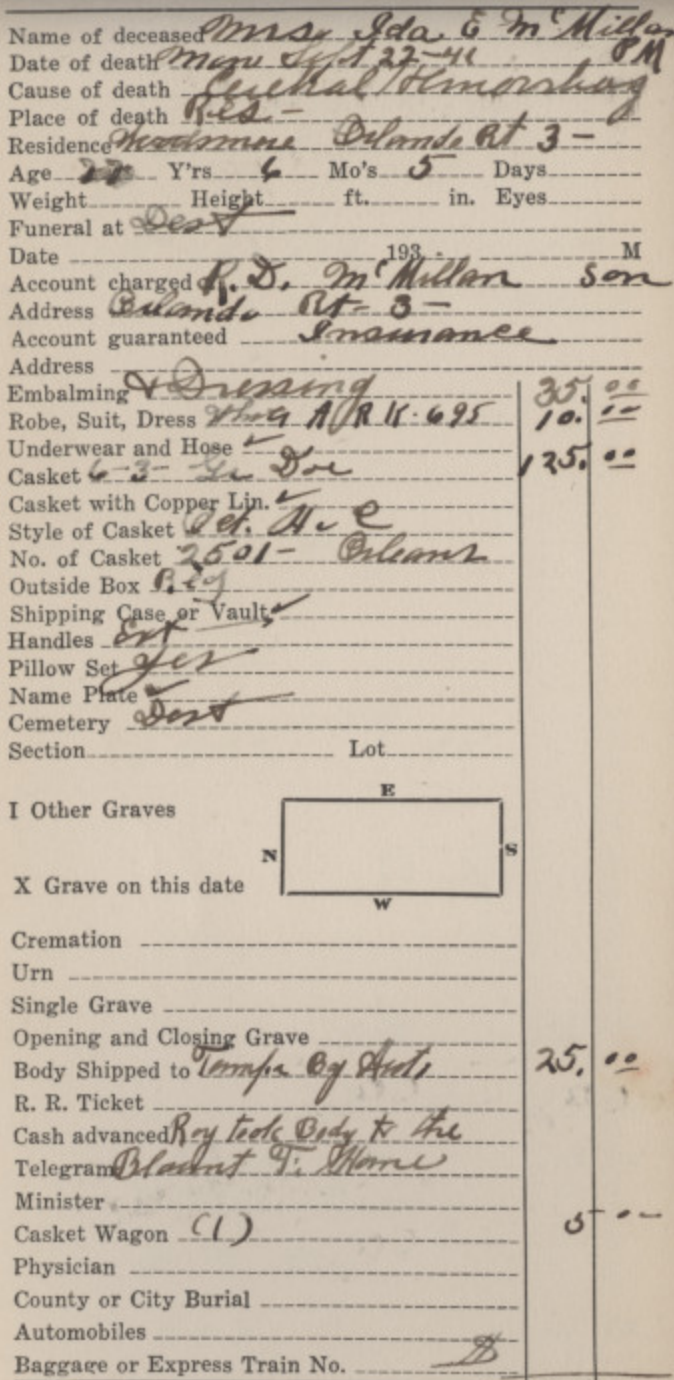 Name of deceased Mrs. Ida E McMillan
Date of death Mon Sept 22-41 PM
Cause of death Cerebral Hemorrhag
Place of death Res -
Residence Orlando Rt 3 -
Age Y'rs 6 Mo's 5 Days
Weight Height ft. in. Eyes
Funeral at Dest
Date 193 M
Account charged R. D. McMillan Son
Address Orlando Rt - 3 -
Account guaranteed Insurance
Address
Embalming & Dressing 35. 00
Robe, Suit, Dress A R K-695 10. 00
Underwear and Hose ✓
Casket 6-3- Doe 125. 00
Casket with Copper Lin. ✓
Style of Casket Oct.
No. of Casket 2501- Orleans
Outside Box Reg
Shipping Case or Vault ✓
Handles Ext
Pillow Set yes
Name Plate ✓
Cemetery Dest
Section Lot
E
I Other Graves
N S
X Grave on this date
W
Cremation
Urn
Single Grave
Opening and Closing Grave
Body Shipped to Tampa By Auto 25. 00
R. R. Ticket
Cash advanced Roy took Body to the
Telegram Blount F. Home
Minister
Casket Wagon (1) 5 00
Physician
County or City Burial
Automobiles
Baggage or Express Train No.